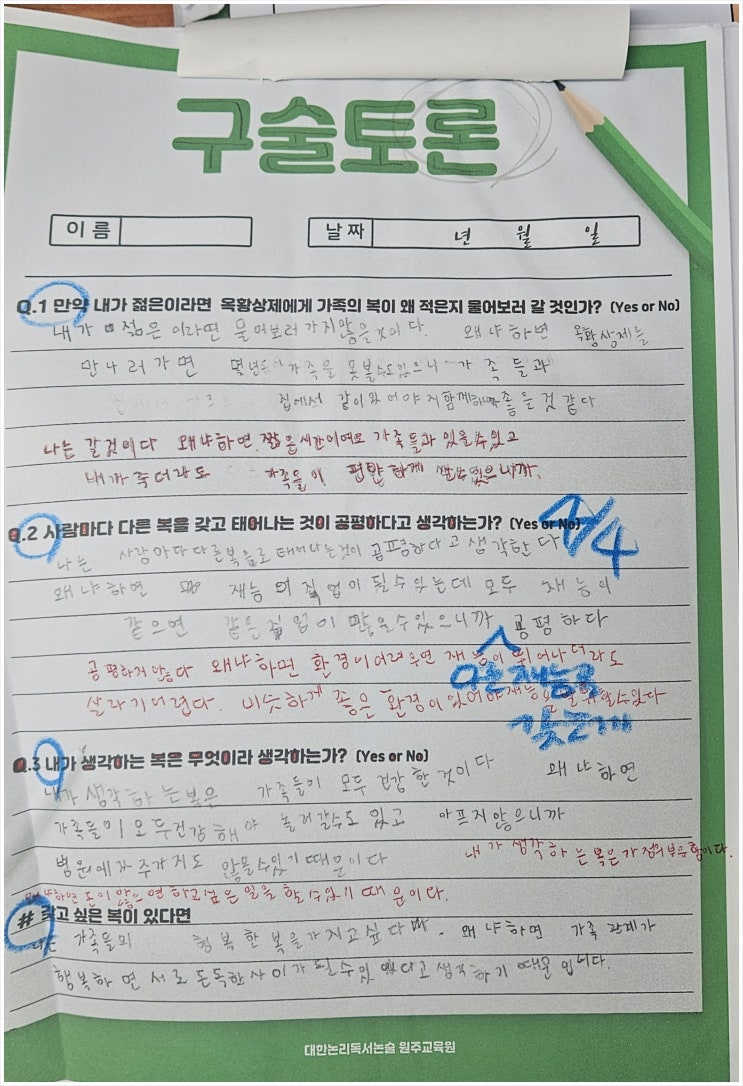 구술토론
이름
날짜 년 월 일
Q.1 만약 내가 젊은이라면 옥황상제에게 가족의 복이 왜 적은지 물어보러 갈 것인가? (Yes or No)
내가 젊은이라면 물어보러가지않을것이다. 왜냐하면 옥황상제를
만나러가면 몇년동안 가족을 못볼수도있으니 가족들과
집에서 같이있어야지 함께하니까 좋을것 같다
나는 갈것이다 왜냐하면 짧은시간이여도 가족들과 있을수있고
내가죽더라도 가족들이 편안하게 쌀수있으니까.
Q.2 사람마다 다른 복을 갖고 태어나는 것이 공평하다고 생각하는가? (Yes or No)
나는 사람마다다른복을로태어나는것이 공평하다고생각한다
왜냐하면 재능의직업이될수있는데 모두 재능이
같으면 같은직업이 많을수있으니까 공평하다
공평하지않다 왜냐하면 환경이어려우면 재능이 뛰어나더라도
살라기어렵다. 비슷하게 좋은 환경이있어야재능을 발휘할수있다
다른 재능을
갖는거
Q.3 내가 생각하는 복은 무엇이라 생각하는가? (Yes or No)
내가생각하는복은 가족들이 모두건강한것이다 왜냐하면
가족들이모두건강해야 놀러갈수도있고 아프지않으니까
병원에자주가지도 않을수있기때문이다
내가생각하는복은가정의부유함이다.
왜냐하면 돈이많으면하고싶은일을할수있기때문이다.
# 갖고 싶은 복이 있다면
나는 가족들의 행복한복을가지고싶다. 왜냐하면 가족관계가
행복하면서로돈독한사이가될수있다고생각하기때문입니다.
대한논리독서논술 원주교육원